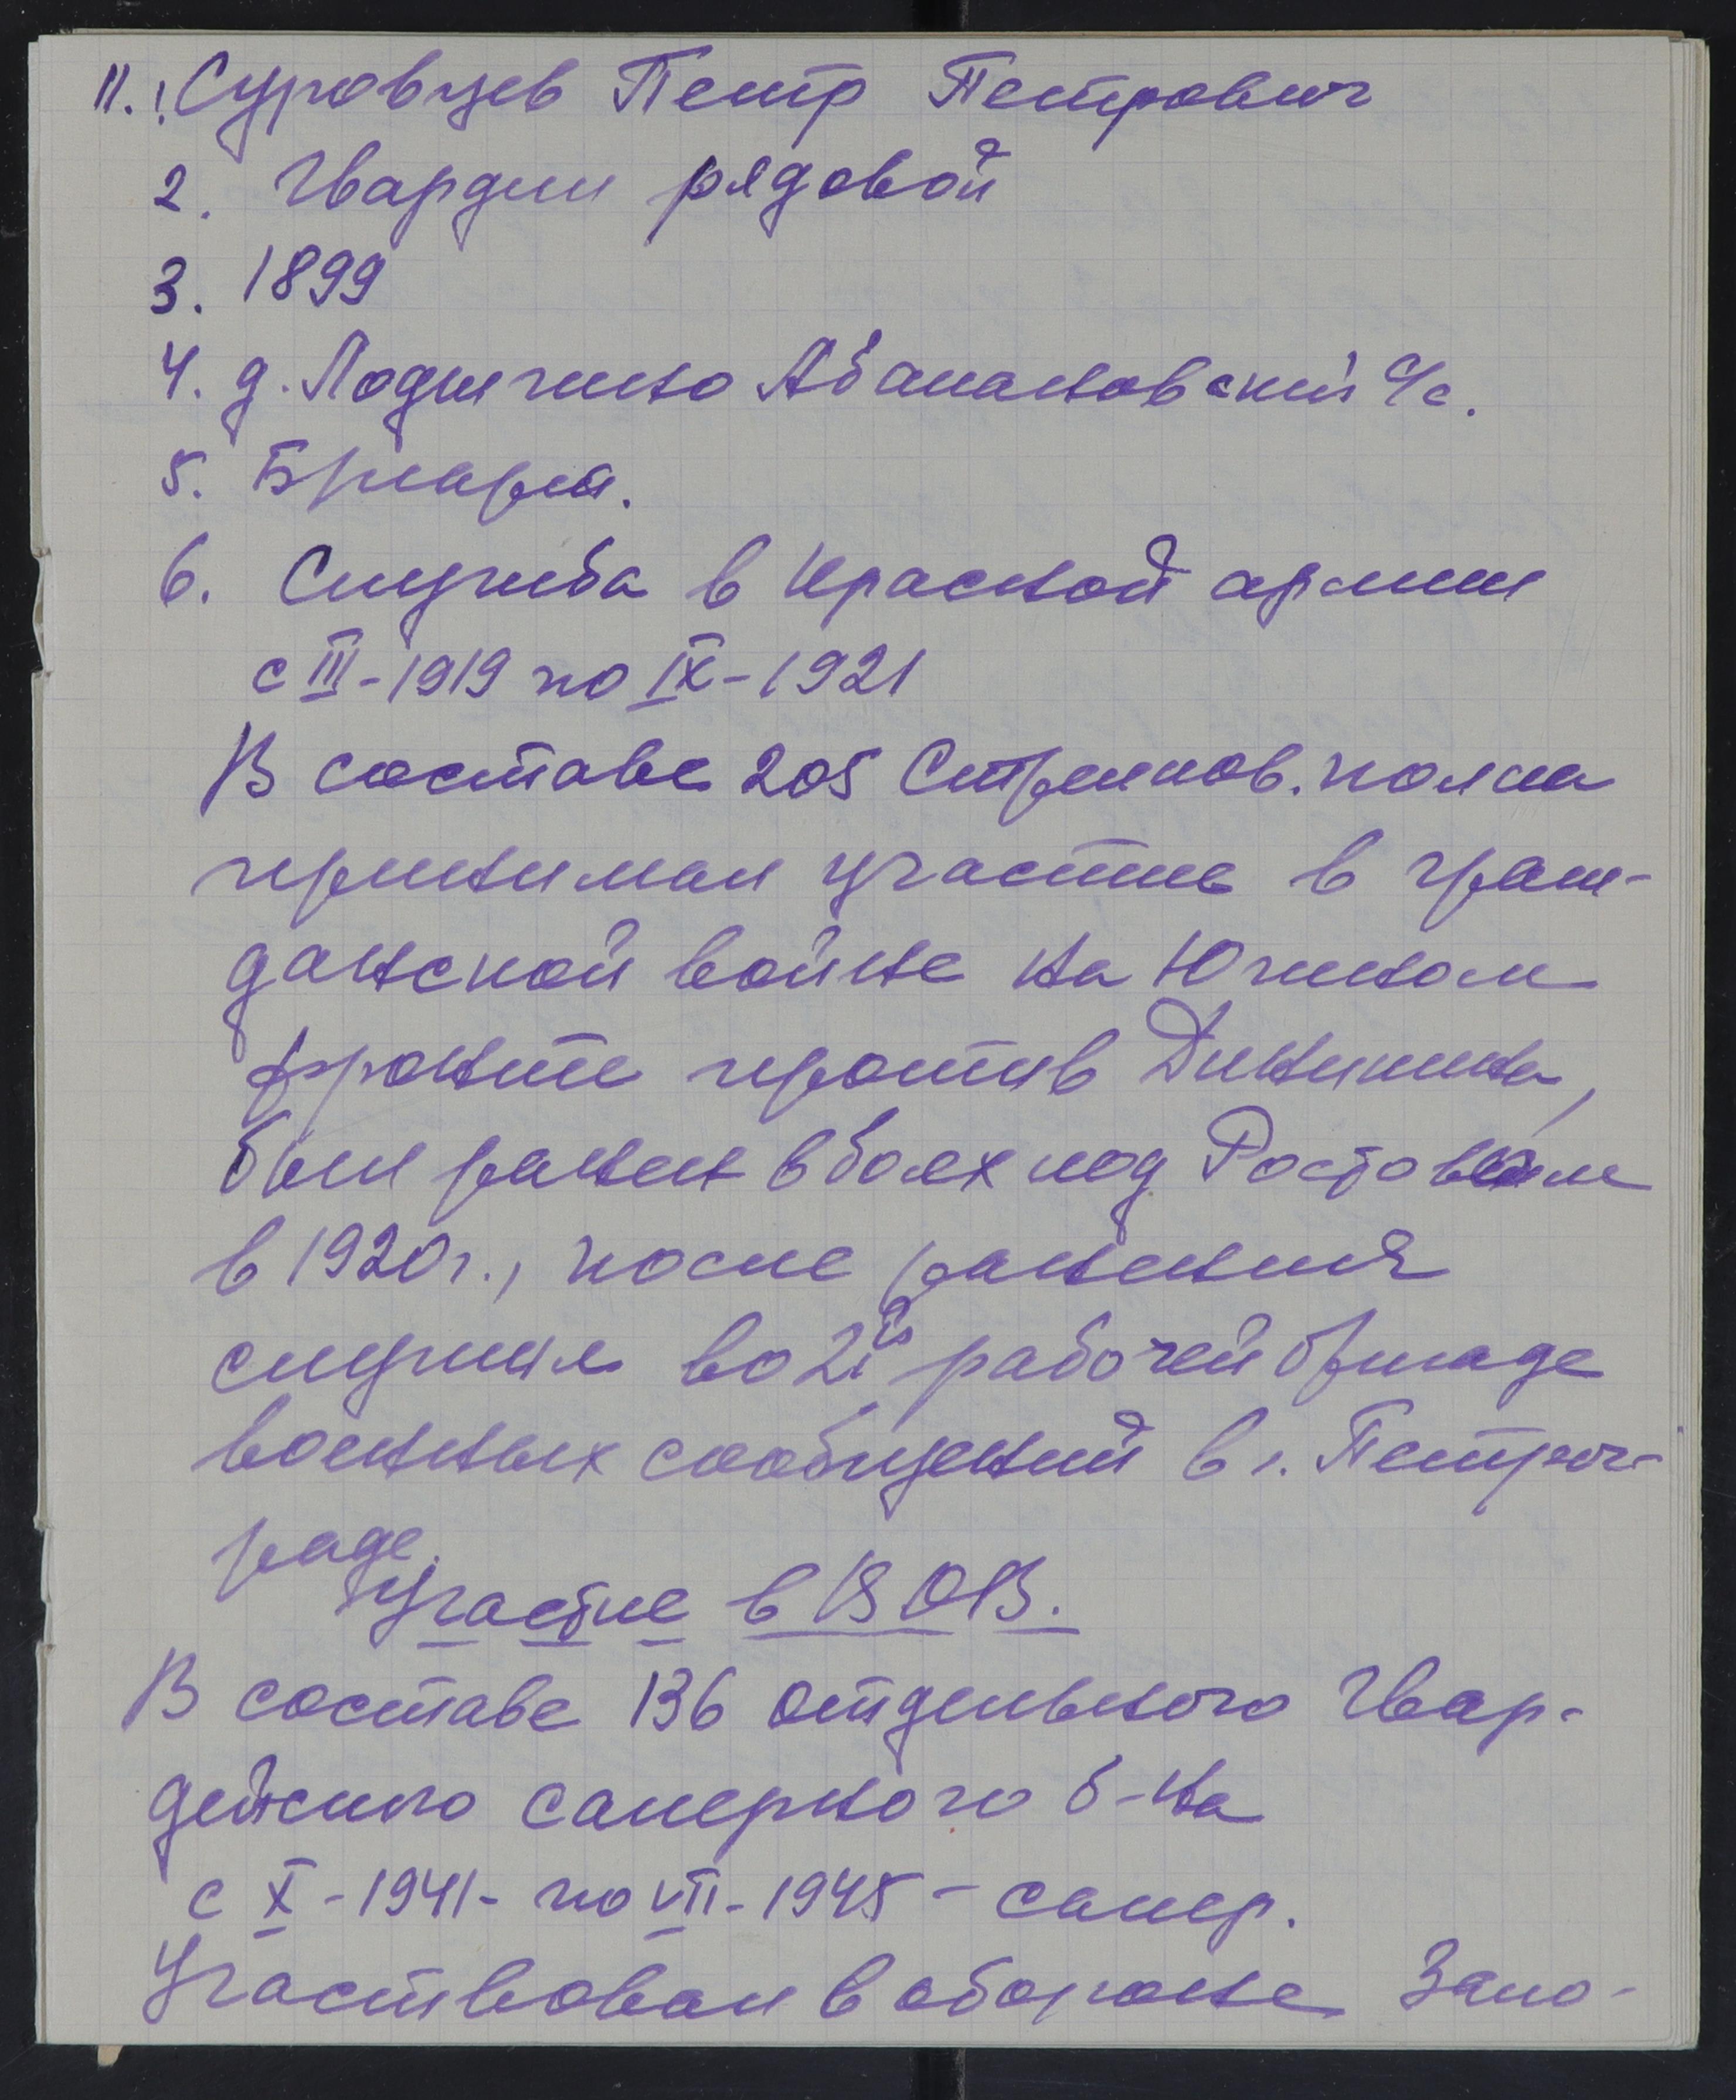 11. 1. Суровцев Петр Петрович
2. Гвардии рядовой
3. 1899
4. д. Лодыгино Абакановский с/с.
5. Бригада.
6. Служба в Красной армии
с III-1919 по IX-1921
В составе 205 Стрелков. полка
принимал участие в граж-
данской войне на Южном
фронте против Диникина,
был ранен в боях под Ростовом
в 1920г., после ранения
служил во 2й рабочей бригаде
военных сообщений в г. Петрог-
раде.
Участие в ВОВ.
В составе 136 отдельного Гвар-
дейского саперного б-на
с X-1941- по VII-1945 - сапер.
Участвовал в обороне Запо-